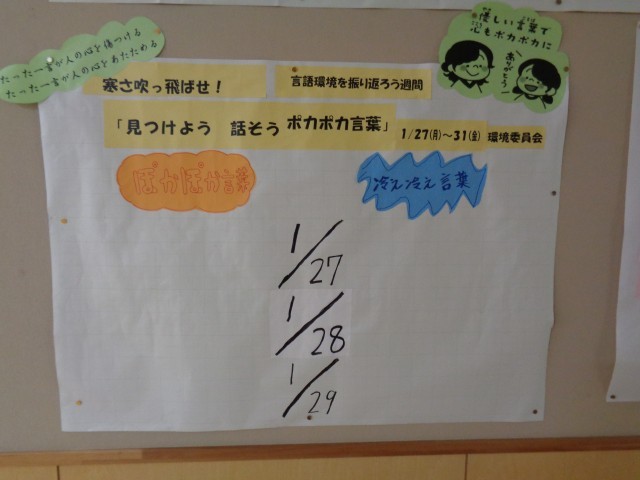 たった一言が人の心を傷つける
たった一言が人の心をあたためる
優しい言葉で
心もポカポカに
ありがとう
寒さ吹っ飛ばせ！
言語環境を振り返ろう週間
「見つけよう　話そう　ポカポカ言葉」
1/27(月)～31(金) 環境委員会
ぽかぽか言葉
冷え冷え言葉
1/27
1/28
1/29